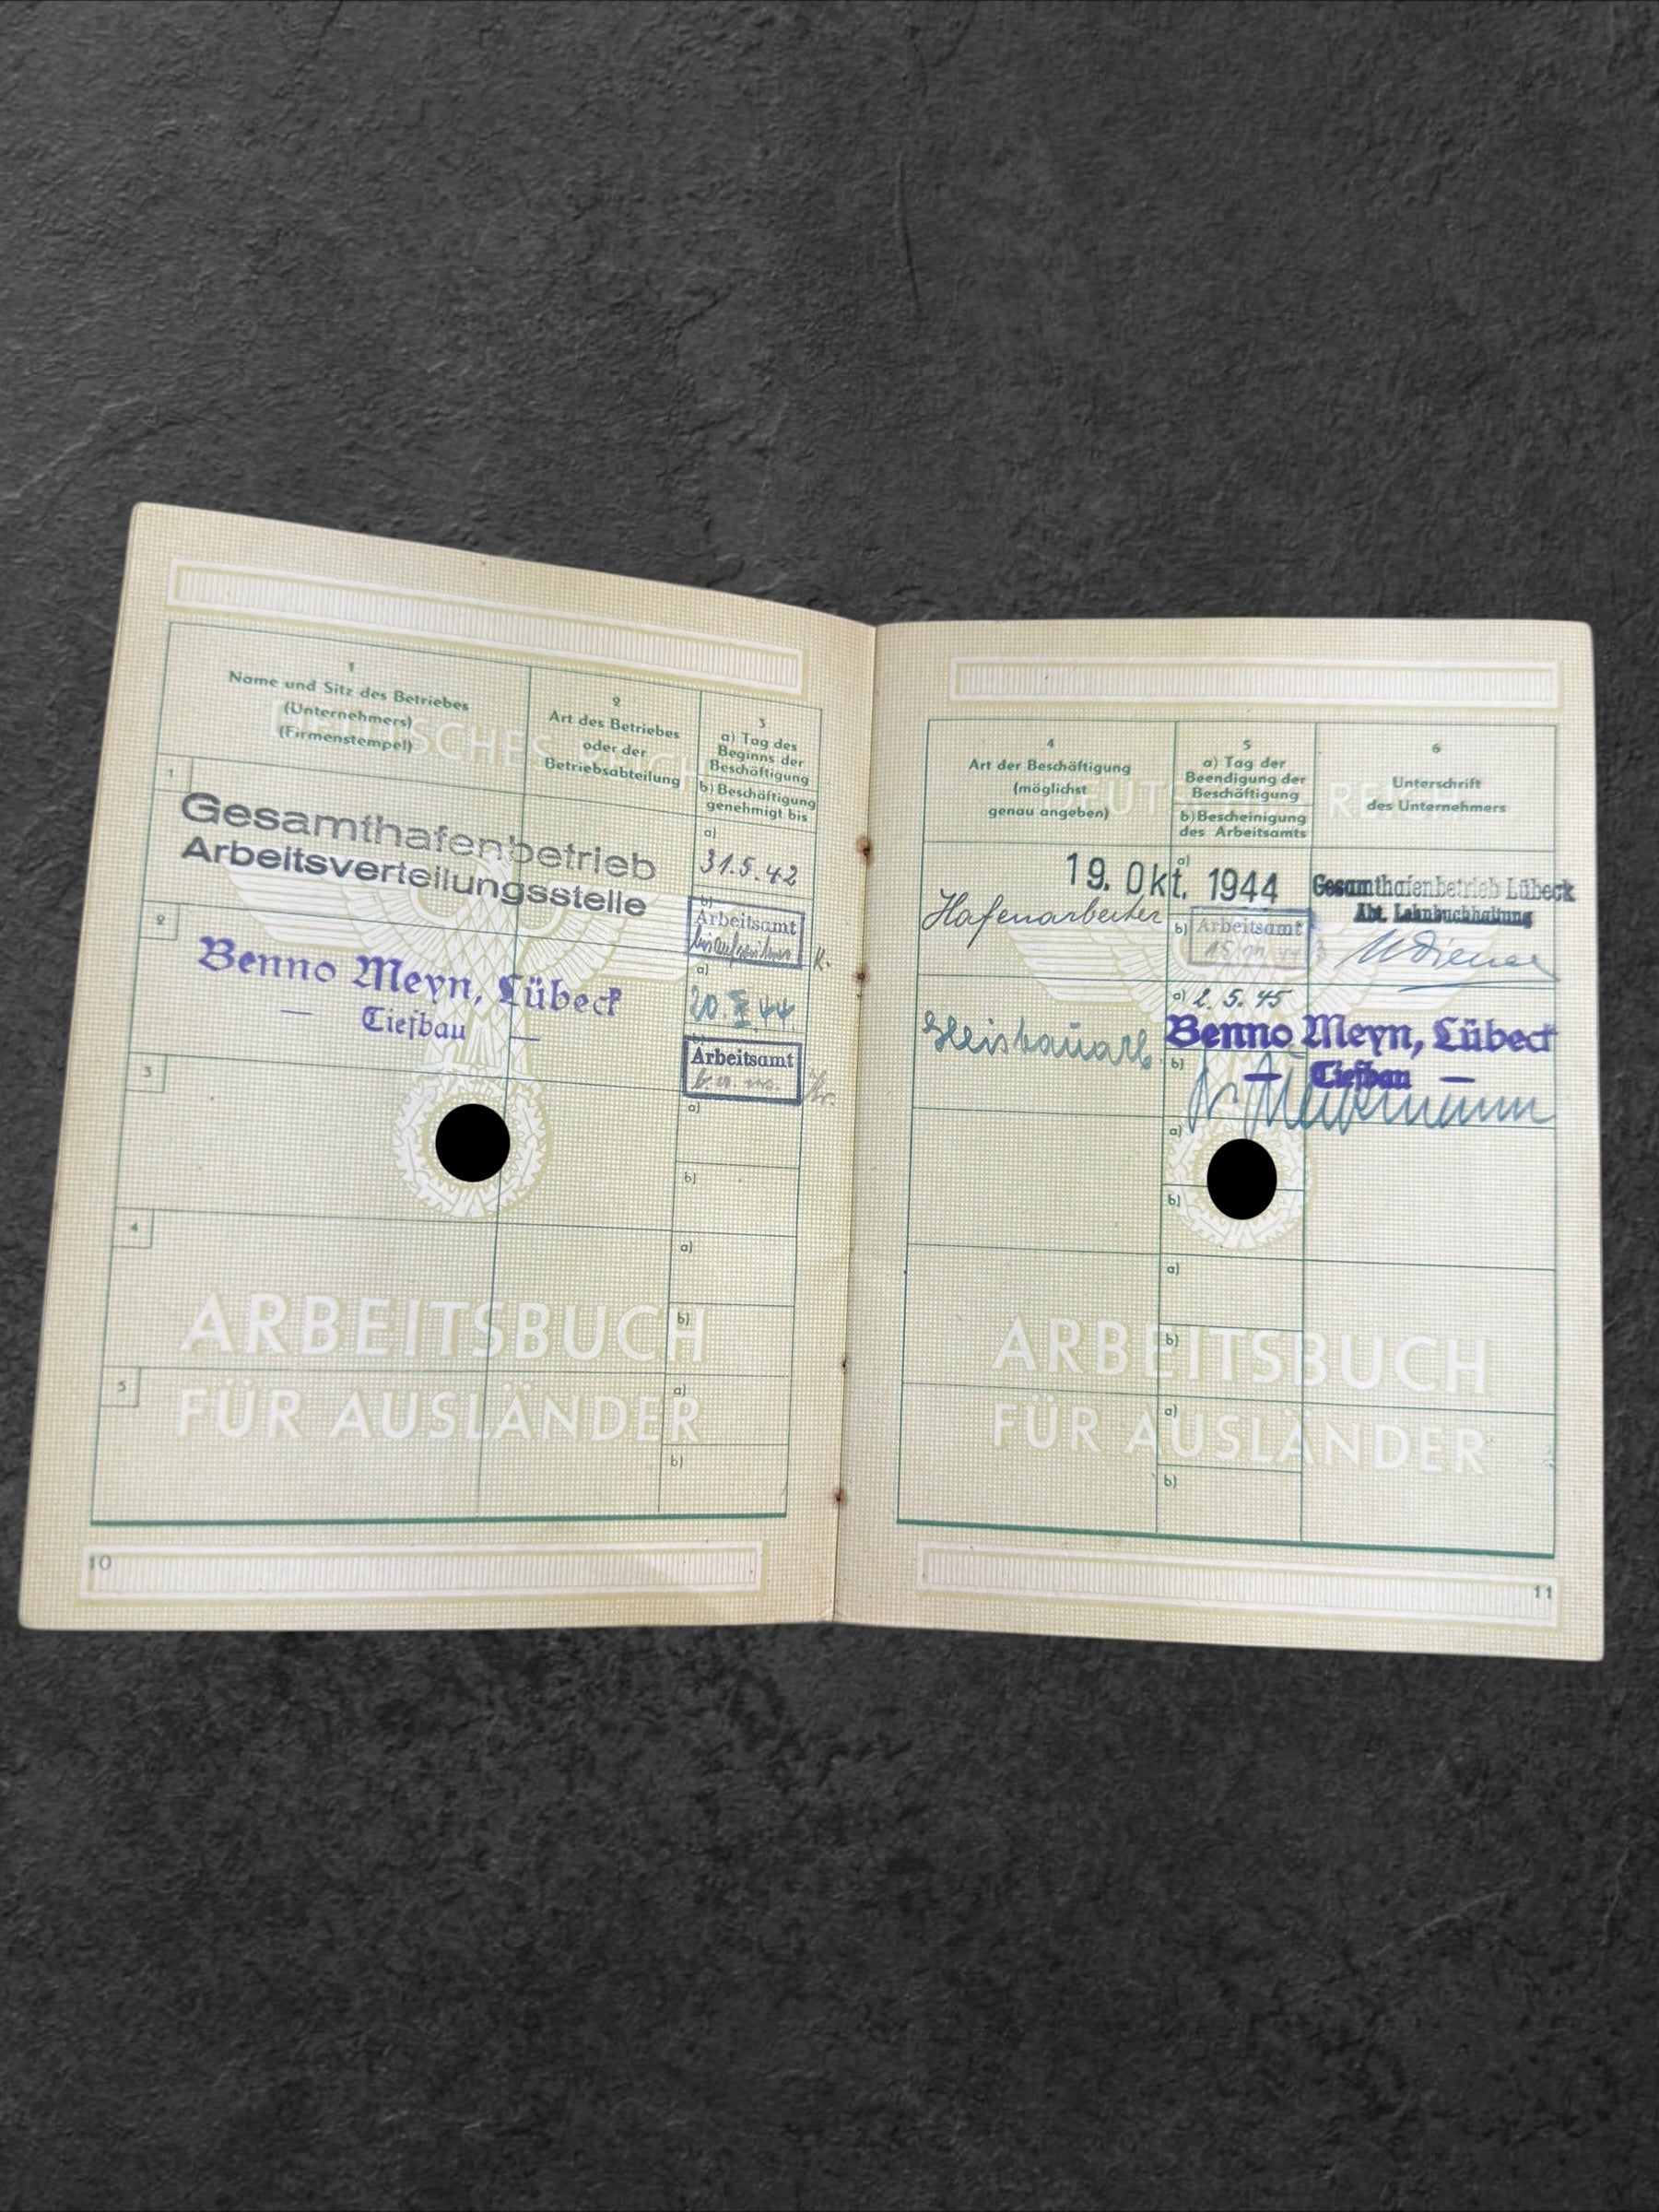 1
Name und Sitz des Betriebes
(Unternehmers)
(Firmenstempel)
2
Art des Betriebes
oder der
Betriebsabteilung
3
a) Tag des
Beginns der
Beschäftigung
b) Beschäftigung
genehmigt bis
DEUTSCHES REICH
1
Gesamthafenbetrieb
Arbeitsverteilungsstelle
a)
31.5.42
b)
Arbeitsamt
K.
2
Benno Meyn, Lübeck
— Tiefbau —
a)
20. X 44
b)
Arbeitsamt
3
a)
b)
4
a)
b)
5
a)
b)
ARBEITSBUCH
FÜR AUSLÄNDER
10
4
Art der Beschäftigung
(möglichst
genau angeben)
5
a) Tag der
Beendigung der
Beschäftigung
b) Bescheinigung
des Arbeitsamts
6
Unterschrift
des Unternehmers
DEUTSCHES REICH
Hafenarbeiter
a)
19. Okt. 1944
b)
Arbeitsamt
Gesamthafenbetrieb Lübeck
Abt. Lohnbuchhaltung
Gleisbauarb.
a) 2. 5. 45
Benno Meyn, Lübeck
— Tiefbau —
b)
a)
b)
a)
b)
a)
b)
ARBEITSBUCH
FÜR AUSLÄNDER
11